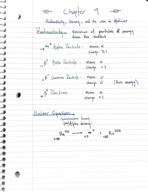 Chapter 9
Radioactivity, Decay, and its use in Medicine
Radioactivity: Emission of particles & energy
from the nucleus
Alpha Particle: Mass: 4
Charge: 2+
β Beta Particle: Mass: 0
Charge: -1
γ Gamma Particle: Mass: 0
Charge: 0 (Pure energy)
β⁺ Positron: Mass: 0
Charge: +1
Nuclear Equations:
Spontaneous Decay
(α) Alpha Decay